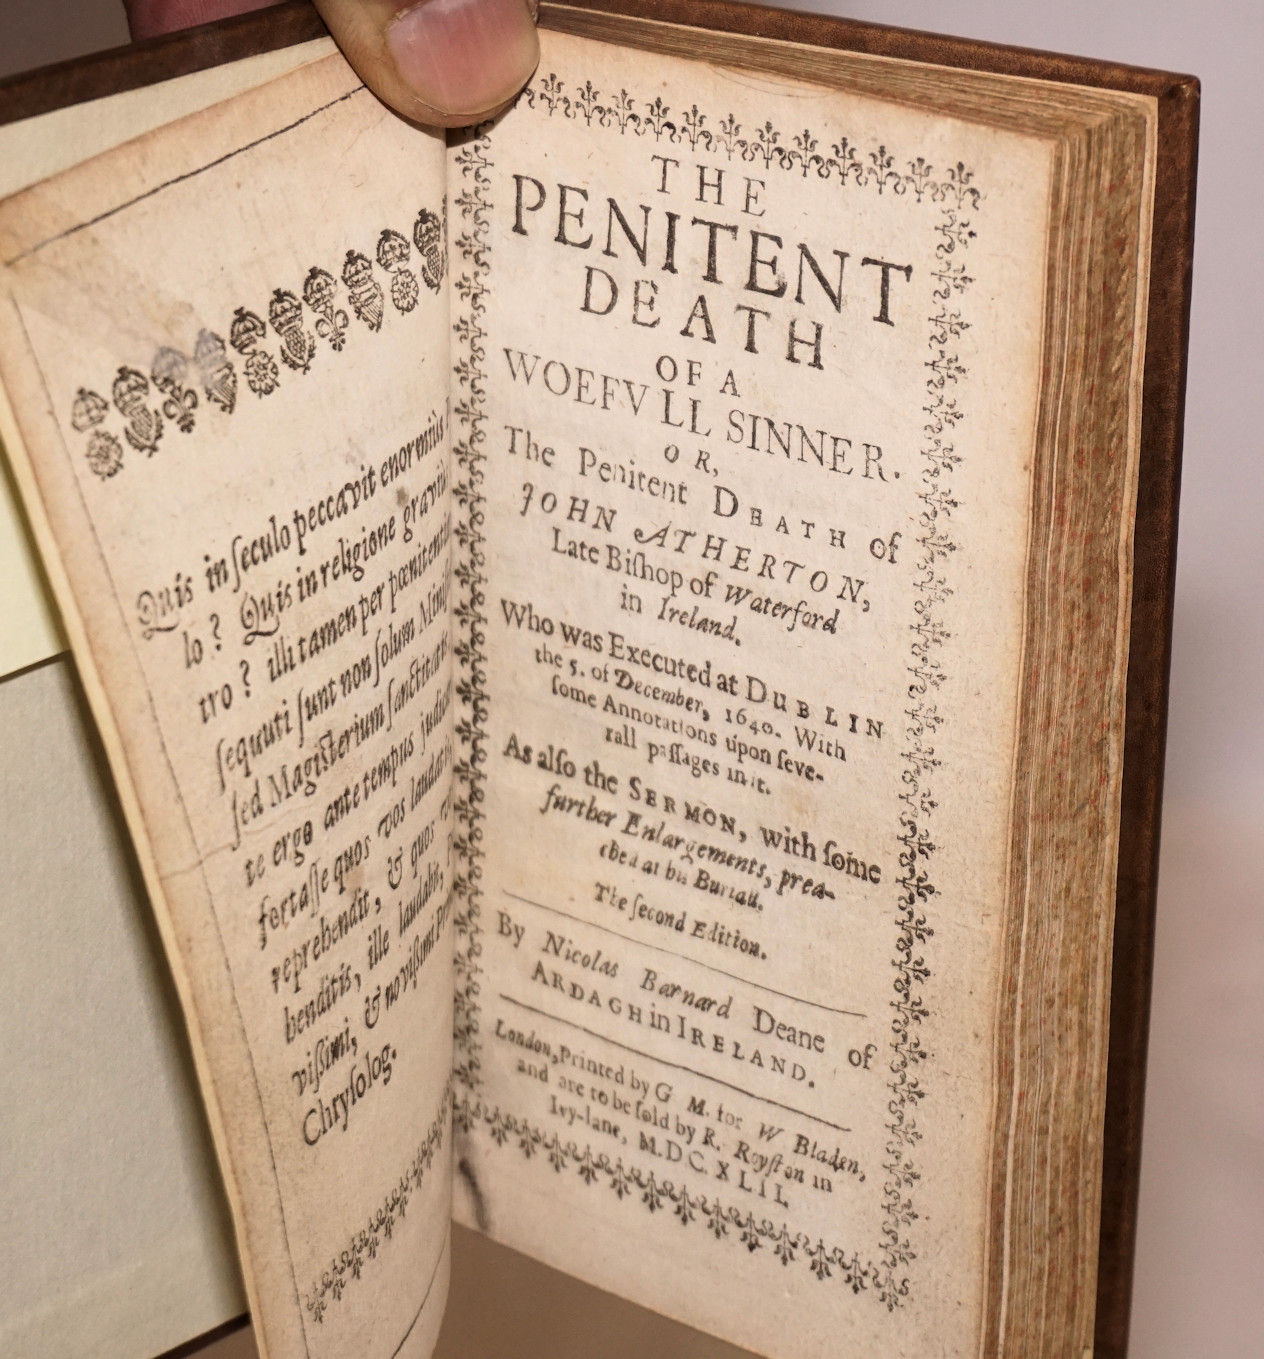 Quis in ſeculo peccavit enormiùs
lo? Quis in religione gravi
tro? illi tamen per pœnitenti
ſequuti ſunt non ſolum Mini
ſed Magiſterium ſanctitatis
te ergo ante tempus judic
fortaſſe quos vos laudat
reprehendit, & quos
benditis, ille laudabit,
viſſimi, & noviſſimi Pr
Chryſolog.
THE
PENITENT
DEATH
OF A
WOEFVLL SINNER.
OR,
The Penitent DEATH of
JOHN ATHERTON,
Late Biſhop of Waterford
in Ireland.
Who was Executed at DUBLIN
the 5. of December, 1640. With
ſome Annotations upon ſeve-
rall paſſages in it.
As alſo the SERMON, with ſome
further Enlargements, prea-
ched at his Buriall.
The ſecond Edition.
By Nicolas Barnard Deane of
ARDAGH in IRELAND.
London, Printed by G M. for W Bladen,
and are to be ſold by R. Royſton in
Ivy-lane, M.DC.XLII.